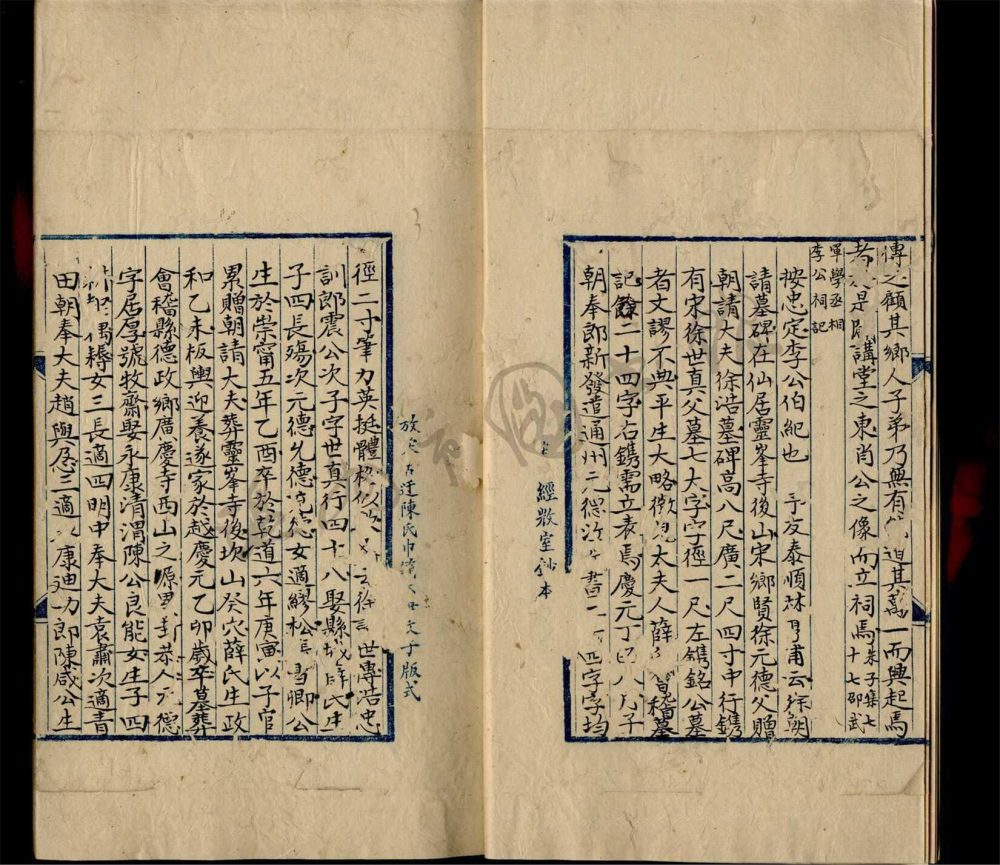 傳之願其鄉人子弟乃無有追其萬一而興起焉
者是即講堂之東肖公之像而立祠焉朱子集七十七邵武
軍學丞相李公祠記
按忠定李公伯紀也予友泰順林亨甫云徐朝
請墓碑在仙居靈峯寺後山宋鄉賢徐元德父贈
朝請大夫徐浩墓碑高八尺廣二尺四寸中行鐫
有宋徐世真父墓七大字字徑一尺左鐫銘公墓
者文謬不典平生大略微見太夫人薛會稽墓
記錄二十四字右鐫需立表焉慶元丁巳八月子
朝奉郎新發遣通州元德書二四字字均
經敩室鈔本
陳氏巾文子版式
徑二寸筆力英挺體世傳浩忠
訓郎震公次子字世真行四十八娶縣薛氏生
子四長殤次元德允德德女適繆松卿公
生於崇甯五年乙酉卒於乾道六年庚寅以子官
累贈朝請大夫葬靈峯寺後坎山癸穴薛氏生政
和乙未板輿迎養遂家於越慶元乙卯歲卒墓葬
會稽縣德政鄉廣慶寺西山之原恭人元德
字居厚號牧齋娶永康清渭陳公良能女生子四
耨女三長適四明中奉大夫袁肅次適青
田朝奉大夫趙與三適康迪功郎陳咸公生